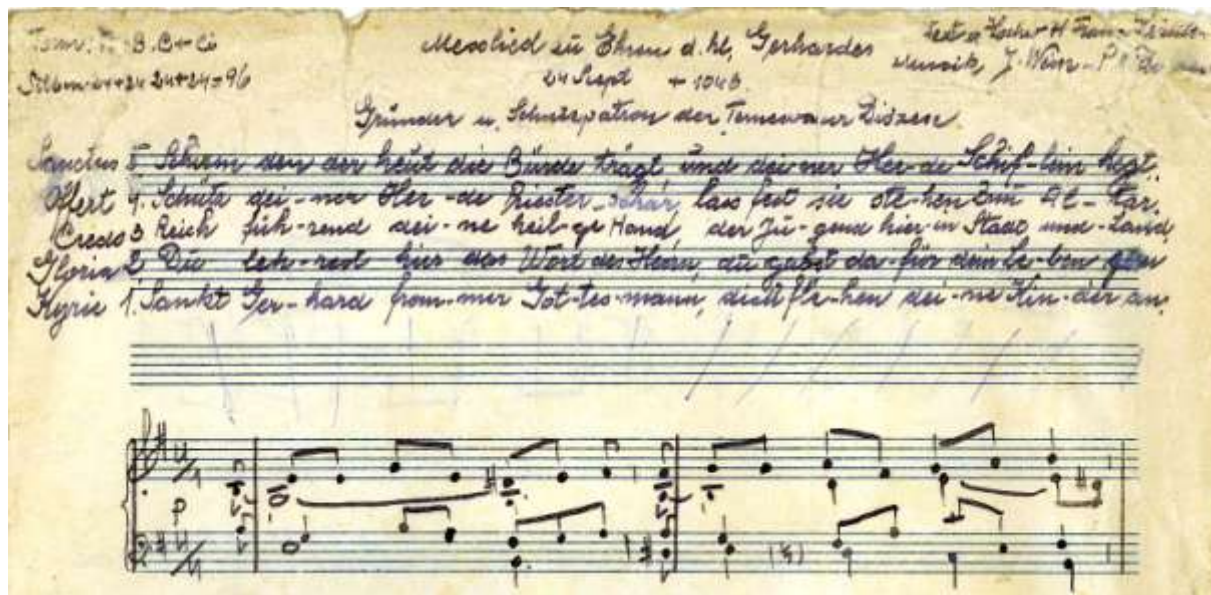 Messlied zu Ehren d. hl. Gerhardus
24 Sept + 1046.
Musik J. Wein - P.
Gründer u. Schutzpatron der Temeswarer Diözese
Sanctus 5 Schirm den der heut die Bürde trägt und dei-ner Her-de Schif-lein hegt.
Offert 4. Schütz dei-ner Her-de Priester-schar, lass fest sie ste-hen zum Al-tar.
Credo 3 Reich füh-rend dei-ne heil-ge Hand, der Ju-gend hier in Stadt und Land
Gloria 2 Du leh-rest hier das Wort des Herrn, du gabst da-für dein Le-ben gern
Kyrie 1. Sankt Ger-hard from-mer Got-tes-mann, dich fle-hen dei-ne Kin-der an.
p